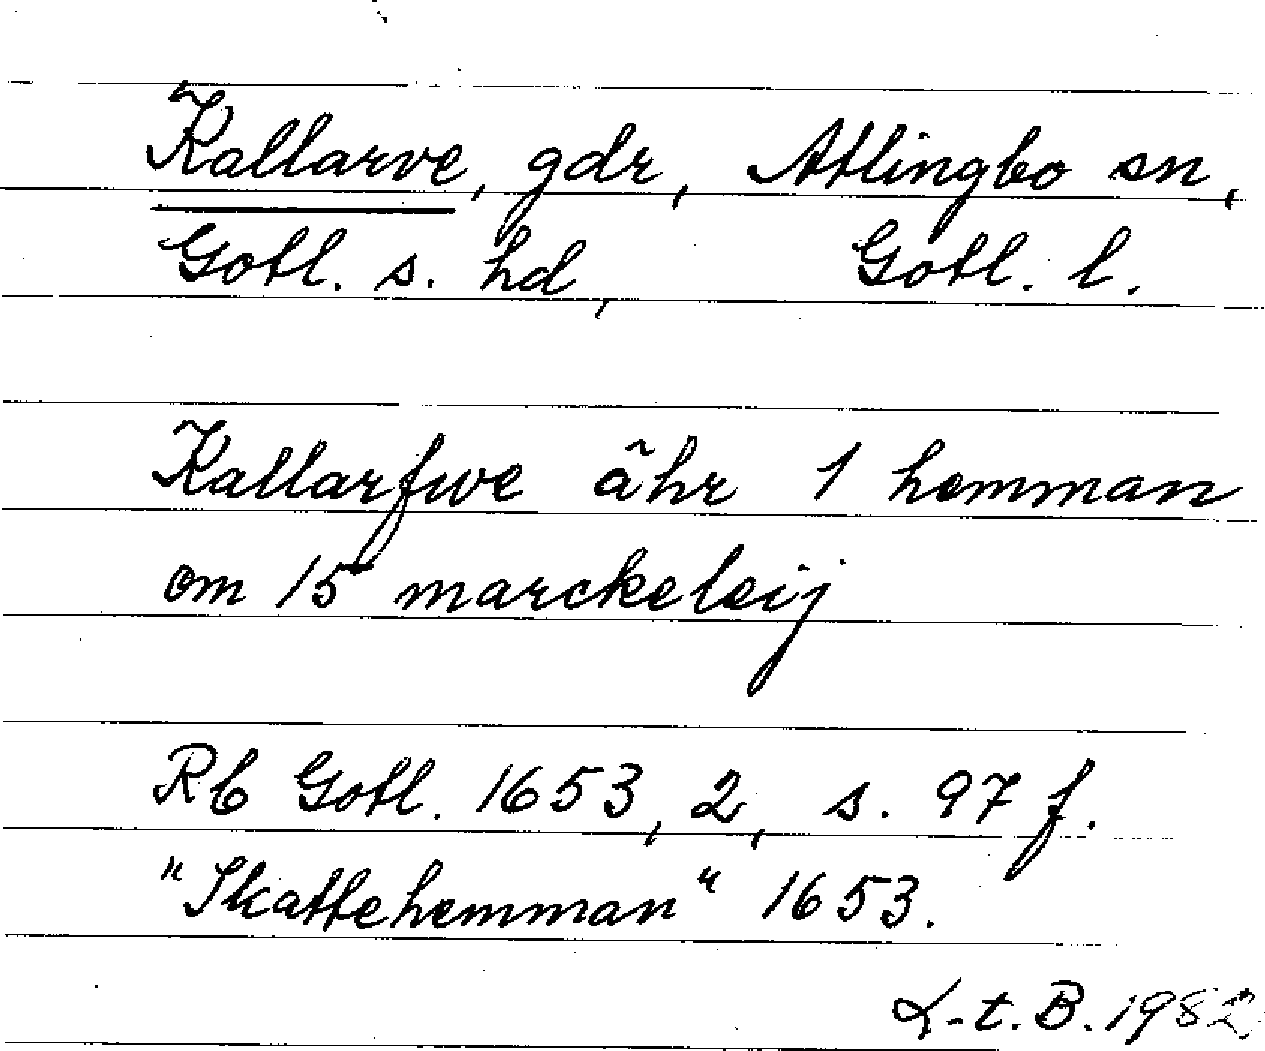 Kallarve, gdr, Atlingbo sn,
Gotl. s. hd, Gotl. l.
Kallarfwe ähr 1 hemman
om 15 marckeleij
Rb Gotl. 1653, 2, s. 97 f.
"Skattehemman" 1653.
L-t. B. 1982